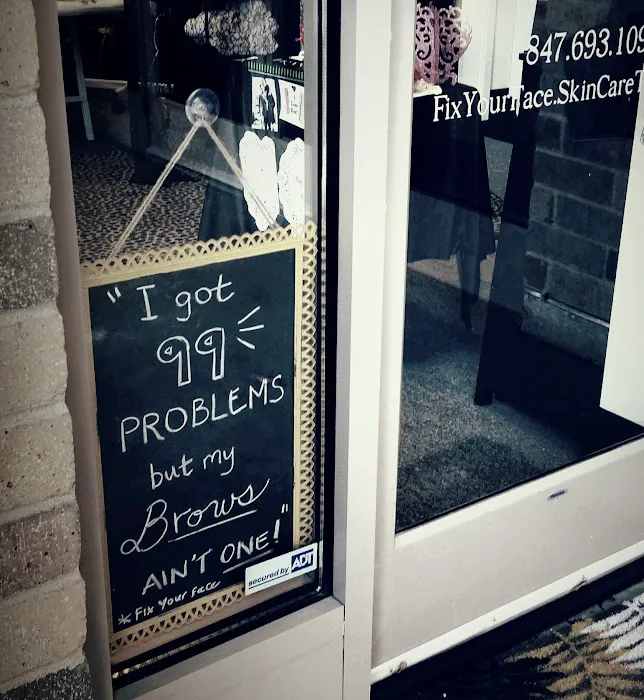 "I got
99
PROBLEMS
but my
Brows
AIN'T ONE!"
*Fix Your Face
secured by ADT
847.693.109
FixYourFace.SkinCareT